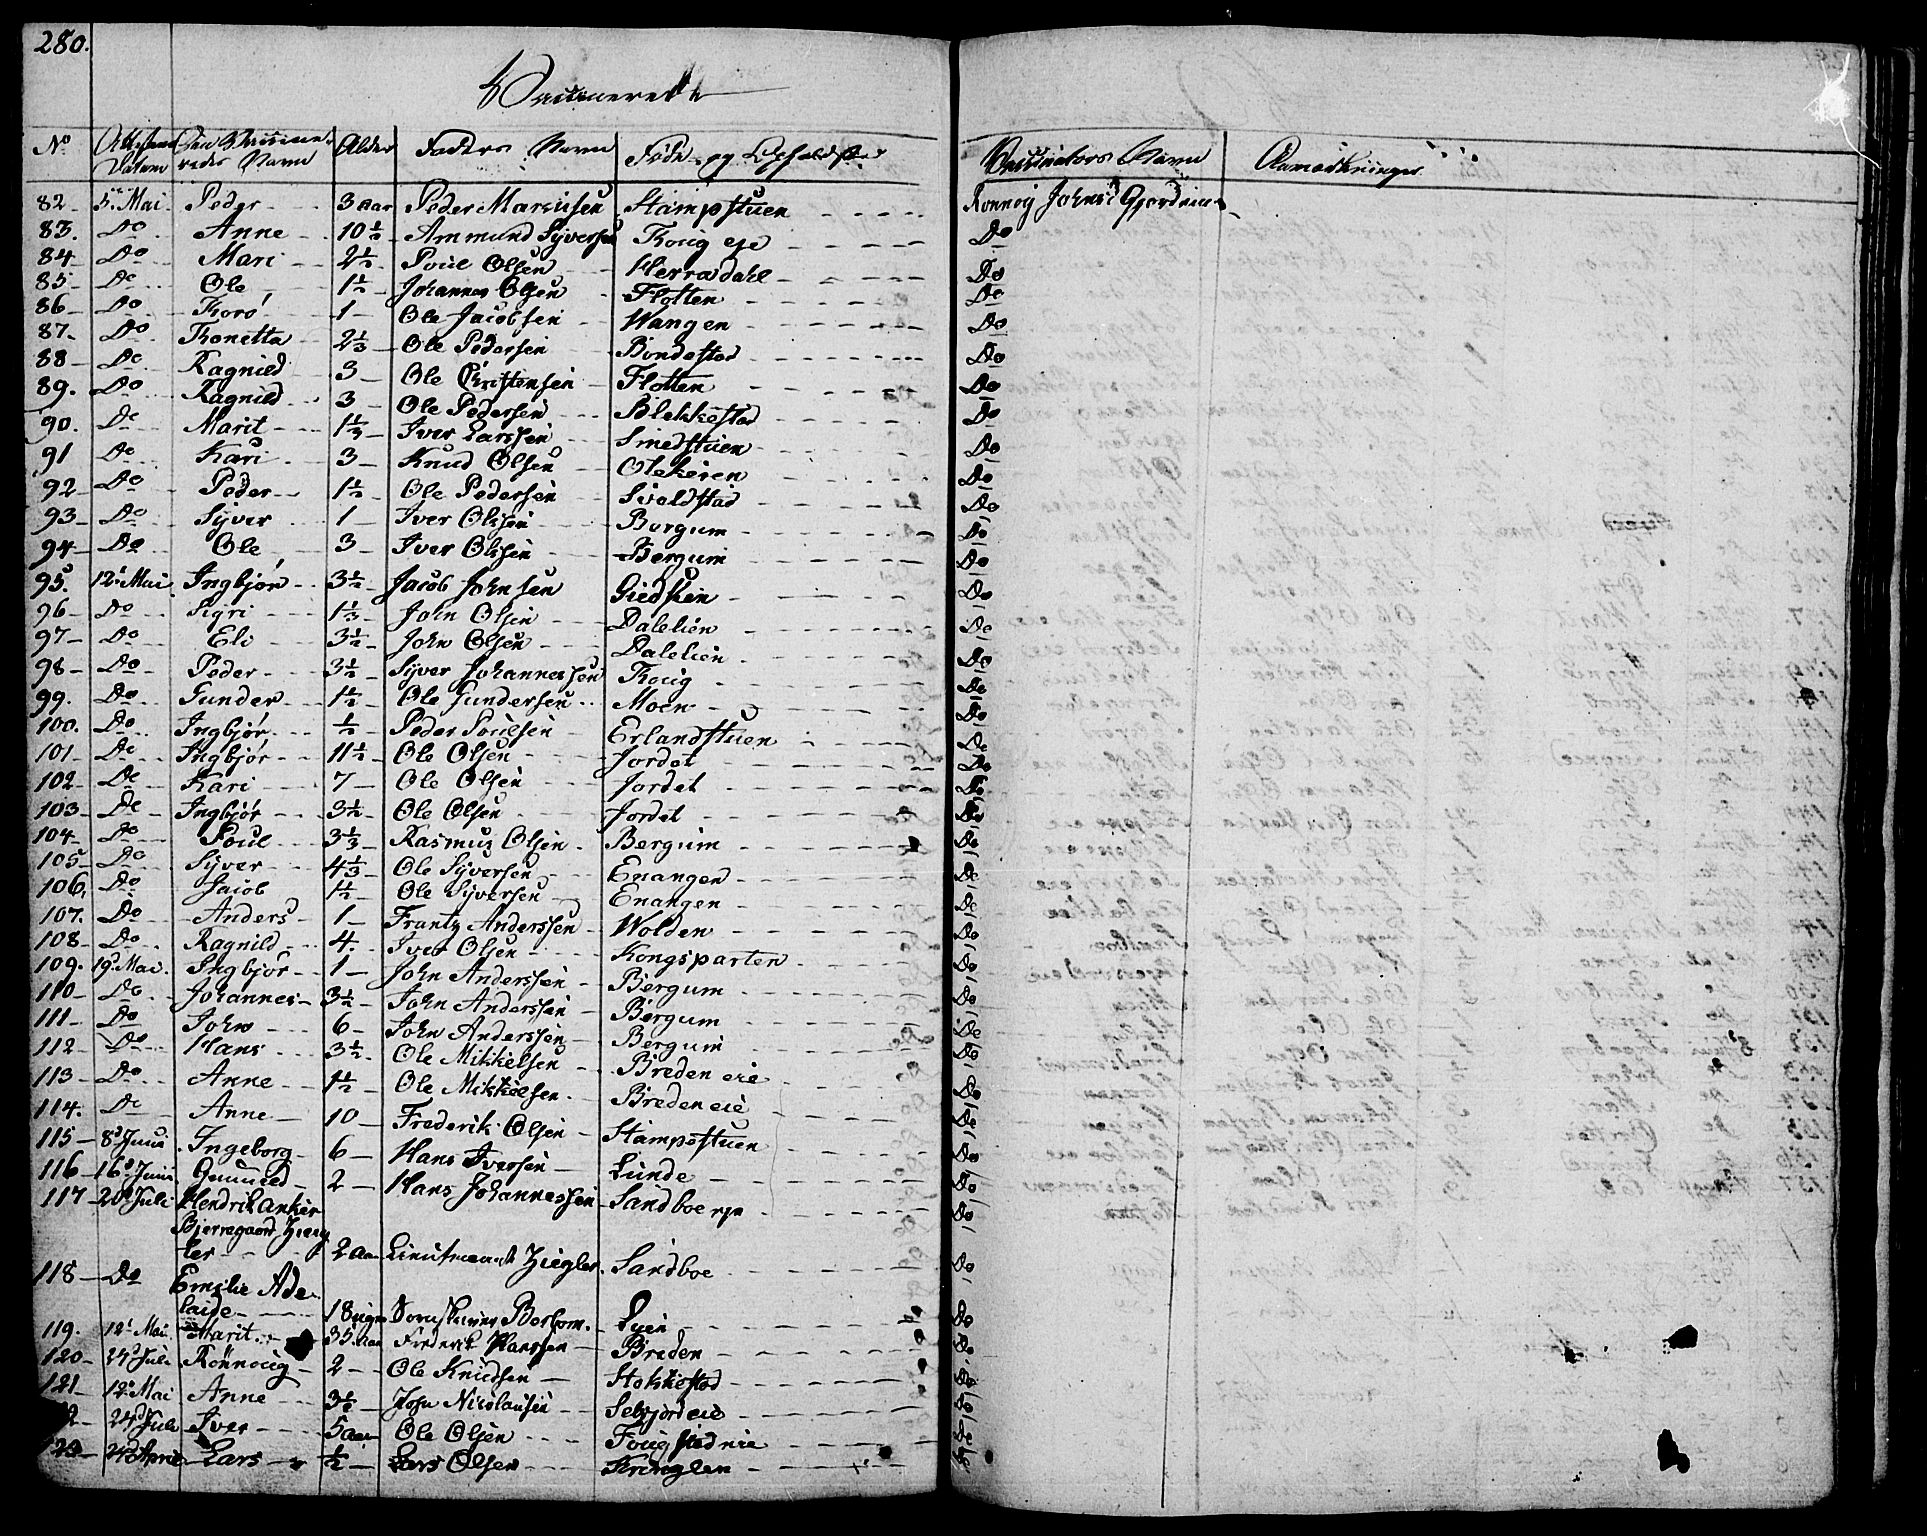 280.
Vaccinerede
No Attestens Datum Den Vaccineredes Navn Alder Faders Navn Føde og Opholdsted Vaccinators Navn Anmærkninger
82 5. Mai Peder 3 aar Peder Marcusen Stampstuen Ronnog Johnsd Gjordnin
83. Do Anne 10 1/2 Ammund Syversen Kougeje Do
84 Do Mari 2 1/2 Poul Olsen Herradahl Do
85 Do Ole 1 1/2 Johannes Olsen Flotten Do
86 Do Thorø 1 Ole Jacobsen Wangen Do
87. Do Thonetta 2 1/3 Ole Pedersen Bondestad Do
88 Do Ragnild 3 Ole Kristensen Flotten Do
89. Do Ragnild 3 Ole Pedersen Blekkestad Do
90. Do Marit 1 1/3 Iver Larssen Smedstuen Do
91 Do Kari 3 Knud Olsen Olekeren Do
92 Do Peder 1 1/2 Ole Pedersen Sivoldstad Do
93 Do Syver 1 Iver Olssen Bergum Do
94 Do Ole 3 Iver Olssen Bergum Do
95. 12. Mai Ingbjør 3 1/2 Jacob Johnsen Giedsten Do
96 Do Sigri 1 1/3 John Olsen Dalelien Do
97 Do Eli 3 1/2 John Olsen Dalelien Do
98 Do Peder 3 1/2 Syver Johannessen Kouig Do
99. Do Gunder 1 1/2 Ole Gundersen Moen Do
100. Do Ingbjør 1/2 Peder Poulsen Erlandstuen Do
101 Do Ingbjør 11 1/2 Ole Olsen Jordet Do
102 Do Kari 7 Ole Olsen Jordet Do
103 Do Ingbjør 3 1/2 Ole Olsen Jordet Do
104 Do Poul 3 1/3 Rasmus Olsen Bergum Do
105 Do Syver 4 1/3 Ole Syversen Enangen Do
106. Do Jacob 1 1/2 Ole Syversen Enangen Do
107. Do Anders 1 Frantz Anderssen Wolden Do
108 Do Ragnild 4. Iver Olsen Kongsparten Do
109. 19. Mai Ingbjør 1 John Anderssen Bergum Do
110 Do Johannes 3 1/2 John Anderssen Bergum Do
111 Do John 6 John Anderssen Bergum Do
112 Do Hans 3 1/2 Ole Mikkelsen Breden eie Do
113 Do Anne 1 1/2 Ole Mikkelsen Breden eie Do
114. Do Anne 10 Frederik Olsen Stampestuen Do
115 8d Juni Ingeborg 6 Hans Iversen Lunde Do
116 16d Juni Gunnild 2 Hans Johannessen Sandboeeje Do
117 20d Juli Hendrik Anker
Bjerregaard Zieg
ler 2 aar Lieutnant Ziegler Sandboe Do
118 Do Emelie Ade
laide 18 uger Berbom. Lyen Do
119. 12. Mai Marit 35. aar Frederik Hanssen Breden Do
120 24d Juli Rønnoug 2 Ole Knudsen Stokkestad Do
121 12. Mai Anne 3 1/2 John Nicolausen Selsjordeie Do
24d Juli Iver 5 aar Ole Olsen Fougstadeie Do
123 24d April Lars 1/2 Lars Olsen Kringlen Do